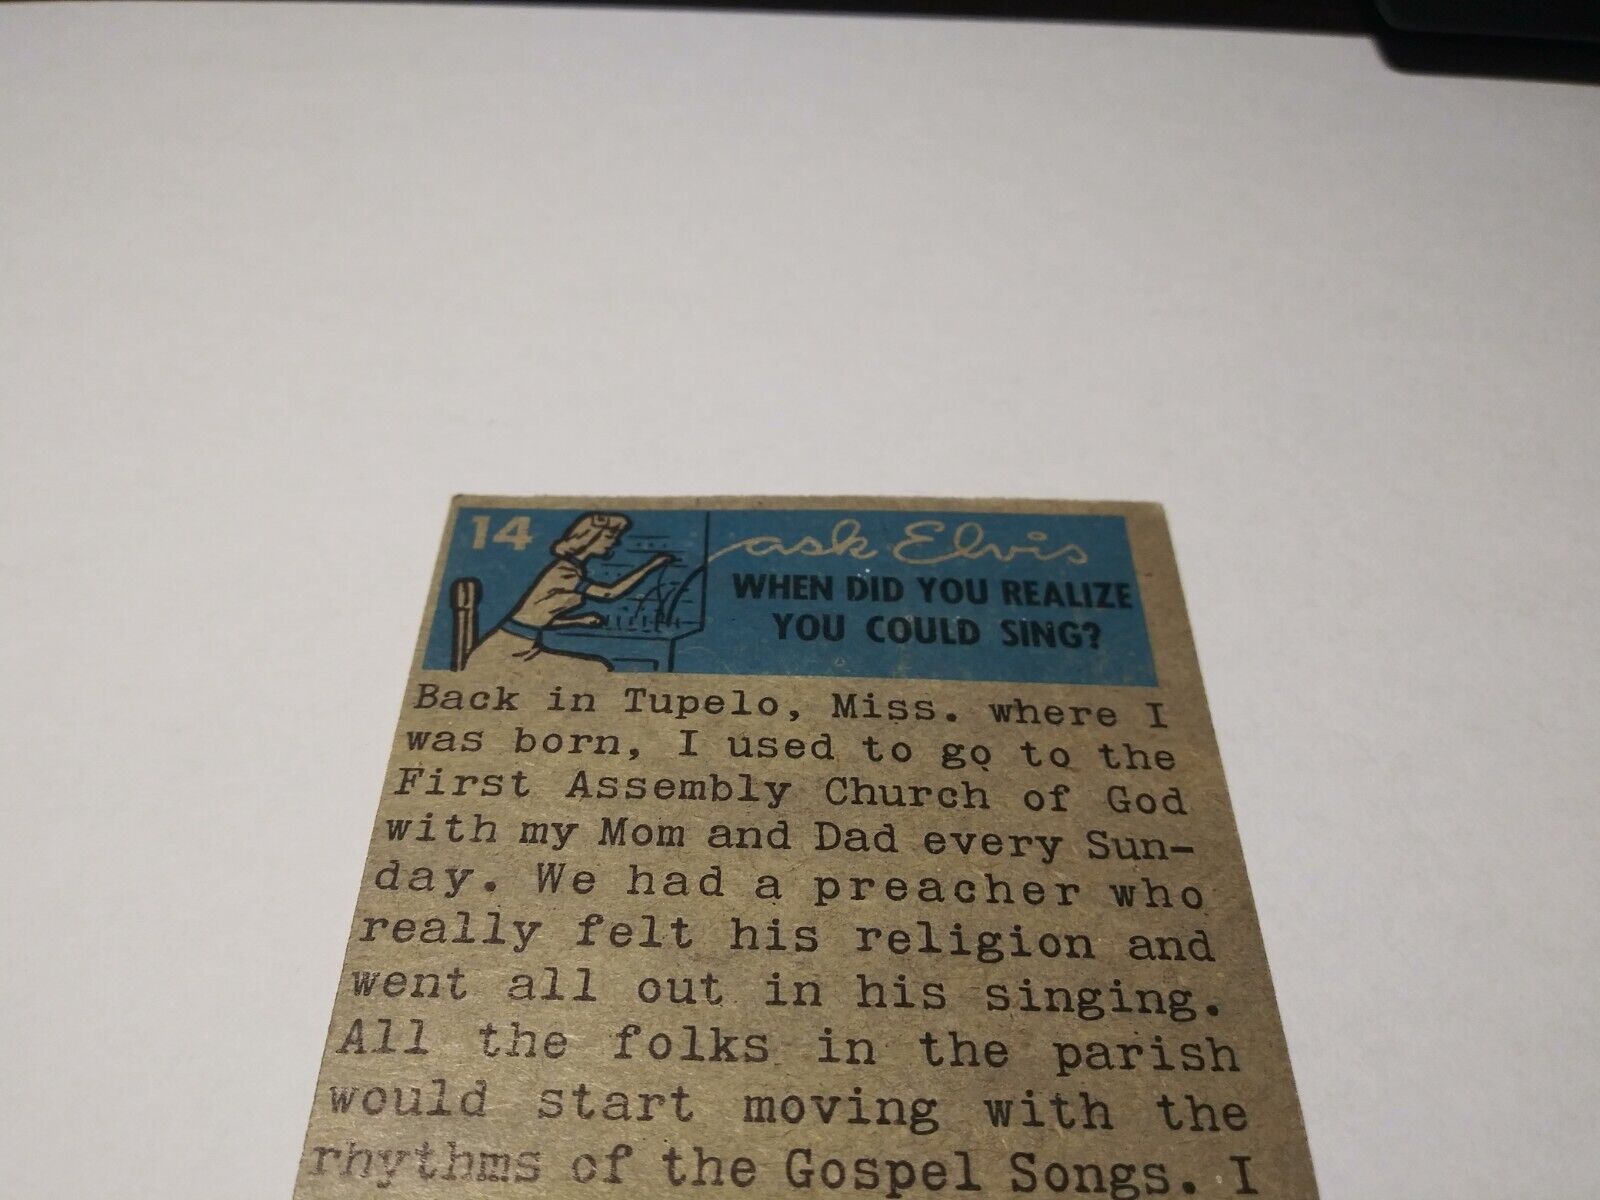 14
ask Elvis
WHEN DID YOU REALIZE
YOU COULD SING?
Back in Tupelo, Miss. where I
was born, I used to go to the
First Assembly Church of God
with my Mom and Dad every Sun-
day. We had a preacher who
really felt his religion and
went all out in his singing.
All the folks in the parish
would start moving with the
rhythms of the Gospel Songs. I